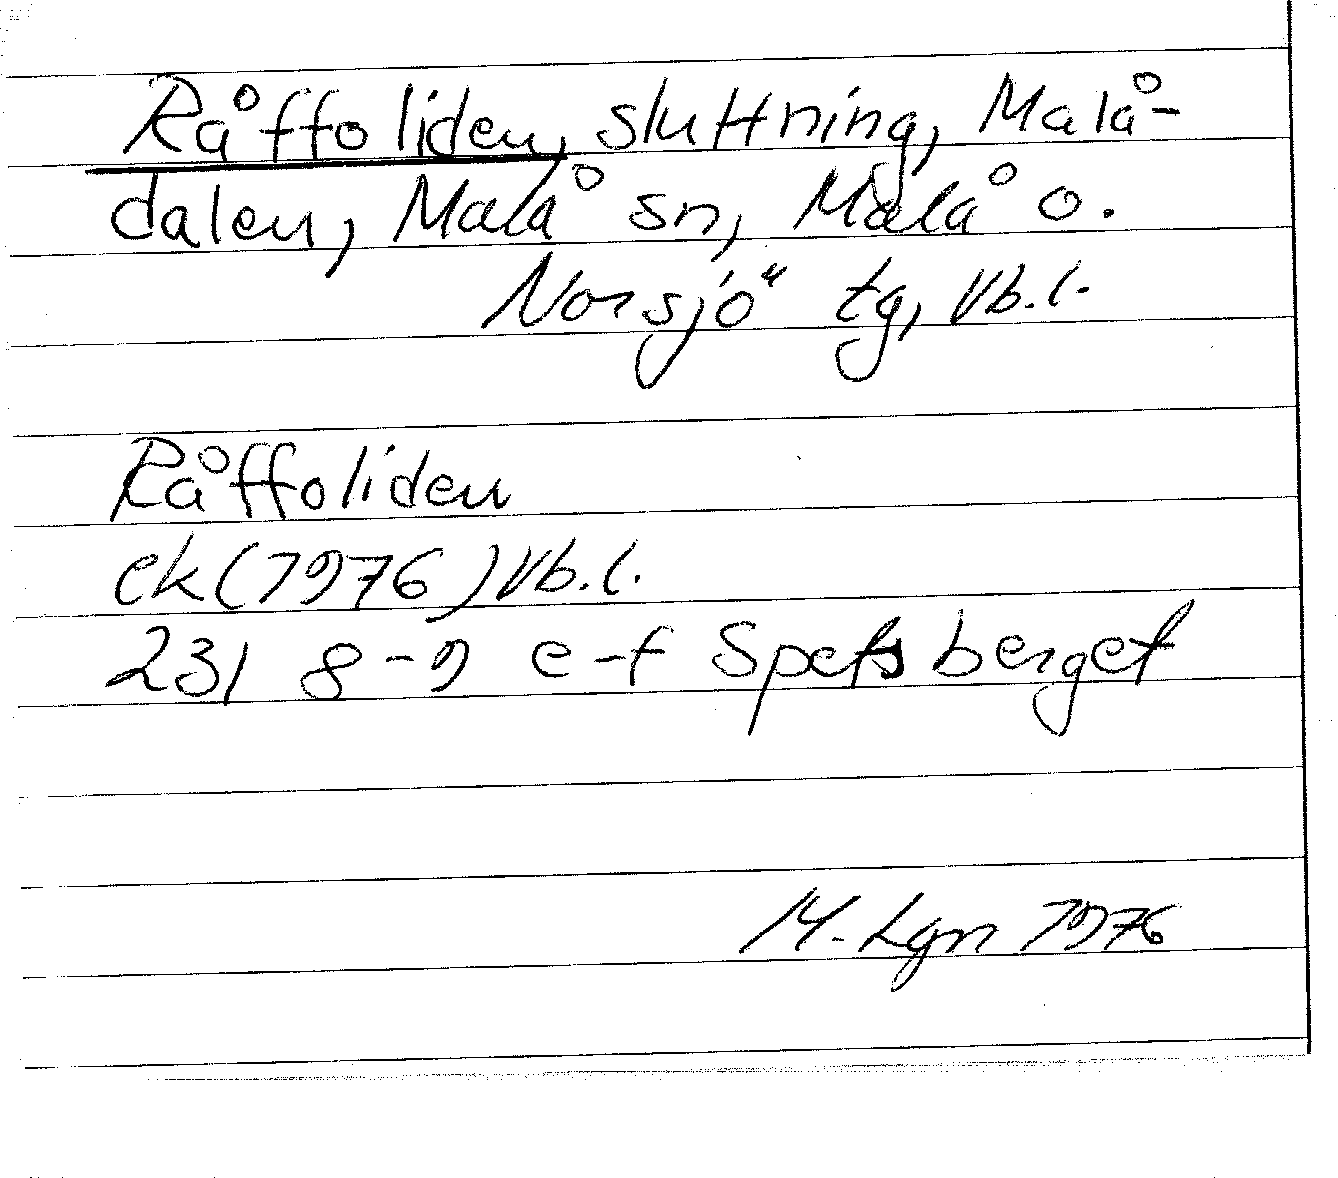 Råffoliden, sluttning, Malå-
dalen, Malå sn, Malå o.
Norsjö tg, Vb.l.
Råffoliden
ek (1976) Vb.l.
231 8-9 e-f Spetsberget
M. Lgn 1976